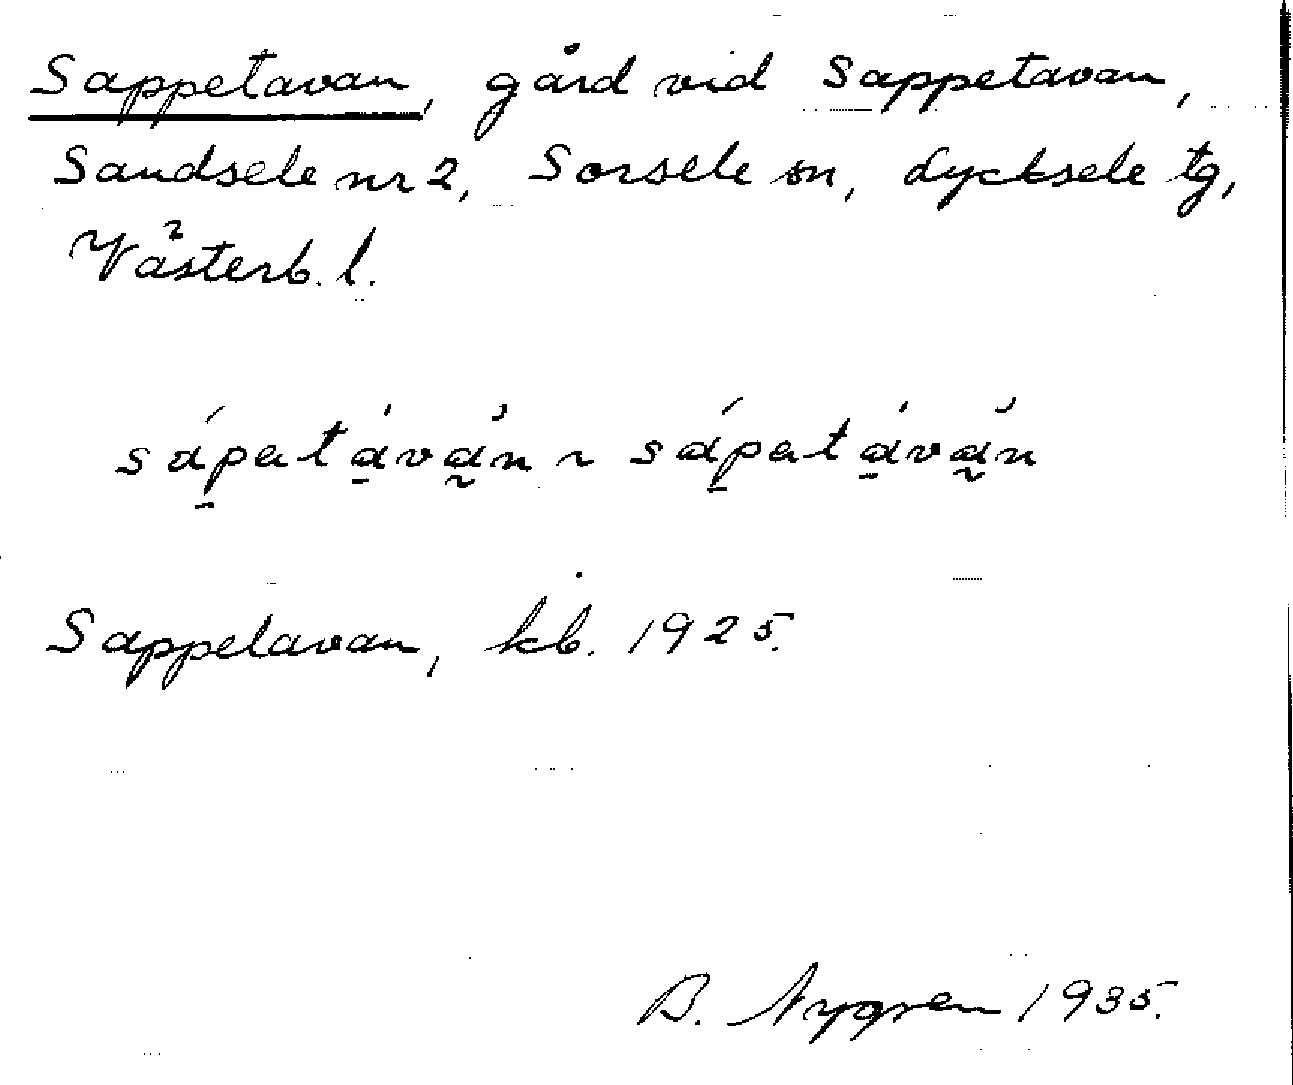 Sappetavan, gård vid Sappetavan,
Sandsele nr 2, Sorsele sn, Lycksele tg,
Västerb. l.
sápatáván ~ sápatáván
Sappetavan, kb. 1925.
B. Nygren 1935.